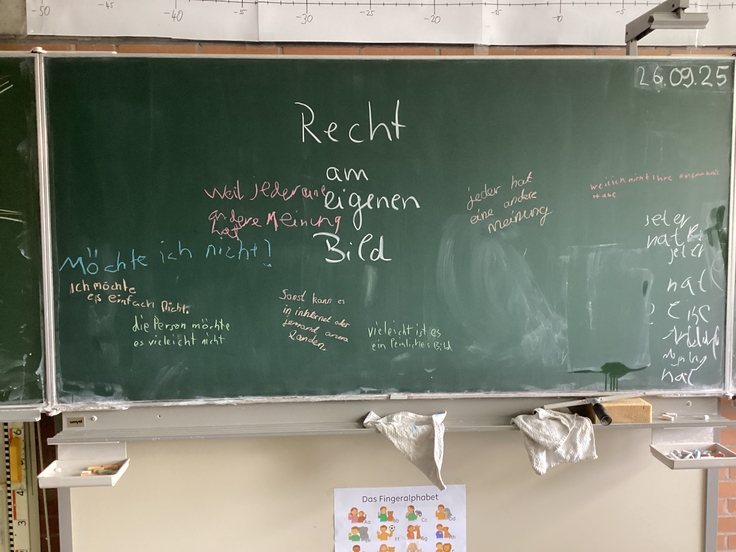 -50
-40
-30
-25
-20
-10
-5
26.09.25
Recht
am
eigenen
Bild
weil jeder eine
andere Meinung
hat
jeder hat
eine andere
meinung
Möchte ich nicht!
Ich möchte
es einfach nicht.
die Person möchte
es vieleicht nicht
Sonst kann es
in internet oder
jemand
landen.
vieleicht ist es
ein Peinliches Bild
weil ich nicht ihre
habe
jeter
hat
jeter
hat
hat
Das Fingeralphabet